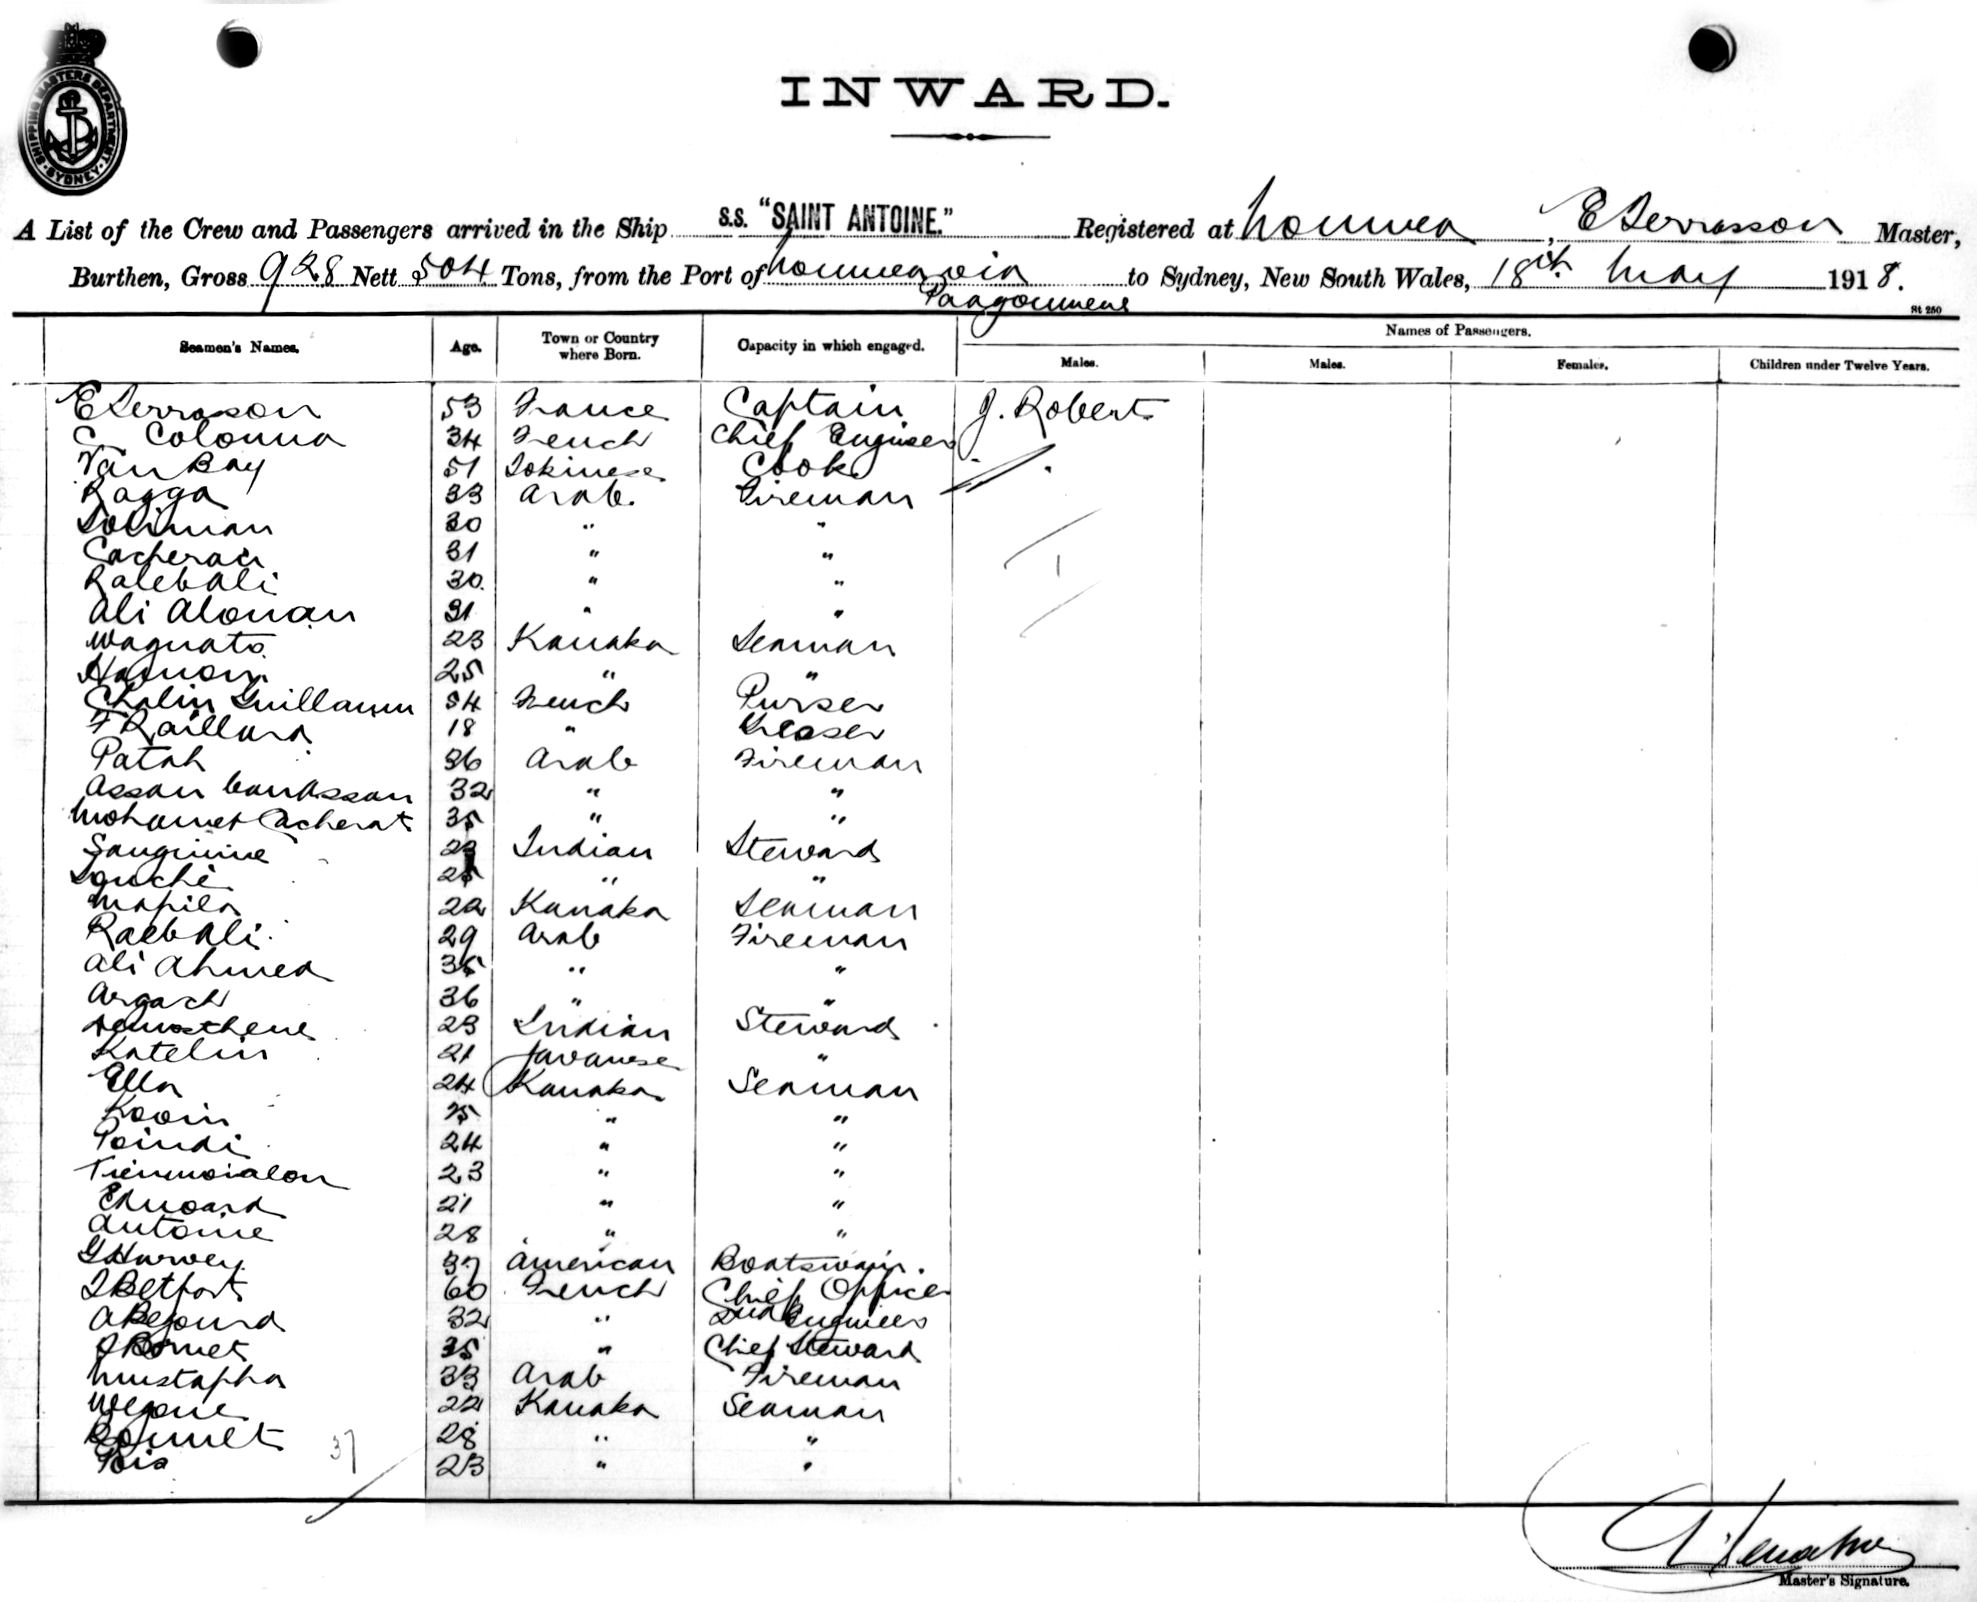 SHIPPING MASTERS DEPARTMENT
SYDNEY
INWARD.
A List of the Crew and Passengers arrived in the Ship S.S. "SAINT ANTOINE." Registered at Noumea, E Terrasson Master,
Burthen, Gross 928 Nett 504 Tons, from the Port of Noumea via to Sydney, New South Wales, 18th May 1918.
Paagoumene
St 250
Seamen's Names. Age. Town or Country where Born. Capacity in which engaged. Names of Passengers.
Males. Males. Females. Children under Twelve Years.
E Terrasson 53 France Captain J. Robert
C Colonna 34 French Chief Engineer
Van Bay 51 Tokinese Cook
Ragga 33 Arab. Fireman
Soliman 30 " "
Cacherau 31 " "
Ralebali 30. " "
Ali Alonan 31 " "
Waguato 23 Kanaka Seaman
Hamon 25 " "
Chalin Guillaum 34 French Purser
F Raillard 18 " Greaser
Patah 36 Arab Fireman
Assan banassan 32 " "
Mohamet Cacherat 35 " "
Sanguinine 23 Indian Steward
Souché " "
Mapila 22 Kanaka Seaman
Raebali 29 Arab Fireman
Ali Ahmed 35 " "
Argach 36 " "
Demosthene 23 Indian Steward
Katelin 21 Javanese "
Ella 24 Kanaka Seaman
Kooin 25 " "
Poindi 24 " "
23 " "
Edward 21 " "
Antoine 28 " "
G Harvey 37 American Boatswain.
J Betfort 60 French Chief Officer
A Begourd 32 " 2nd Engineer
J Bornet 35 " Chief Steward
Mustapha 33 Arab Fireman
Wegone 22 Kanaka Seaman
Bonnet 28 " "
Pois 23 " "
37
Master's Signature.